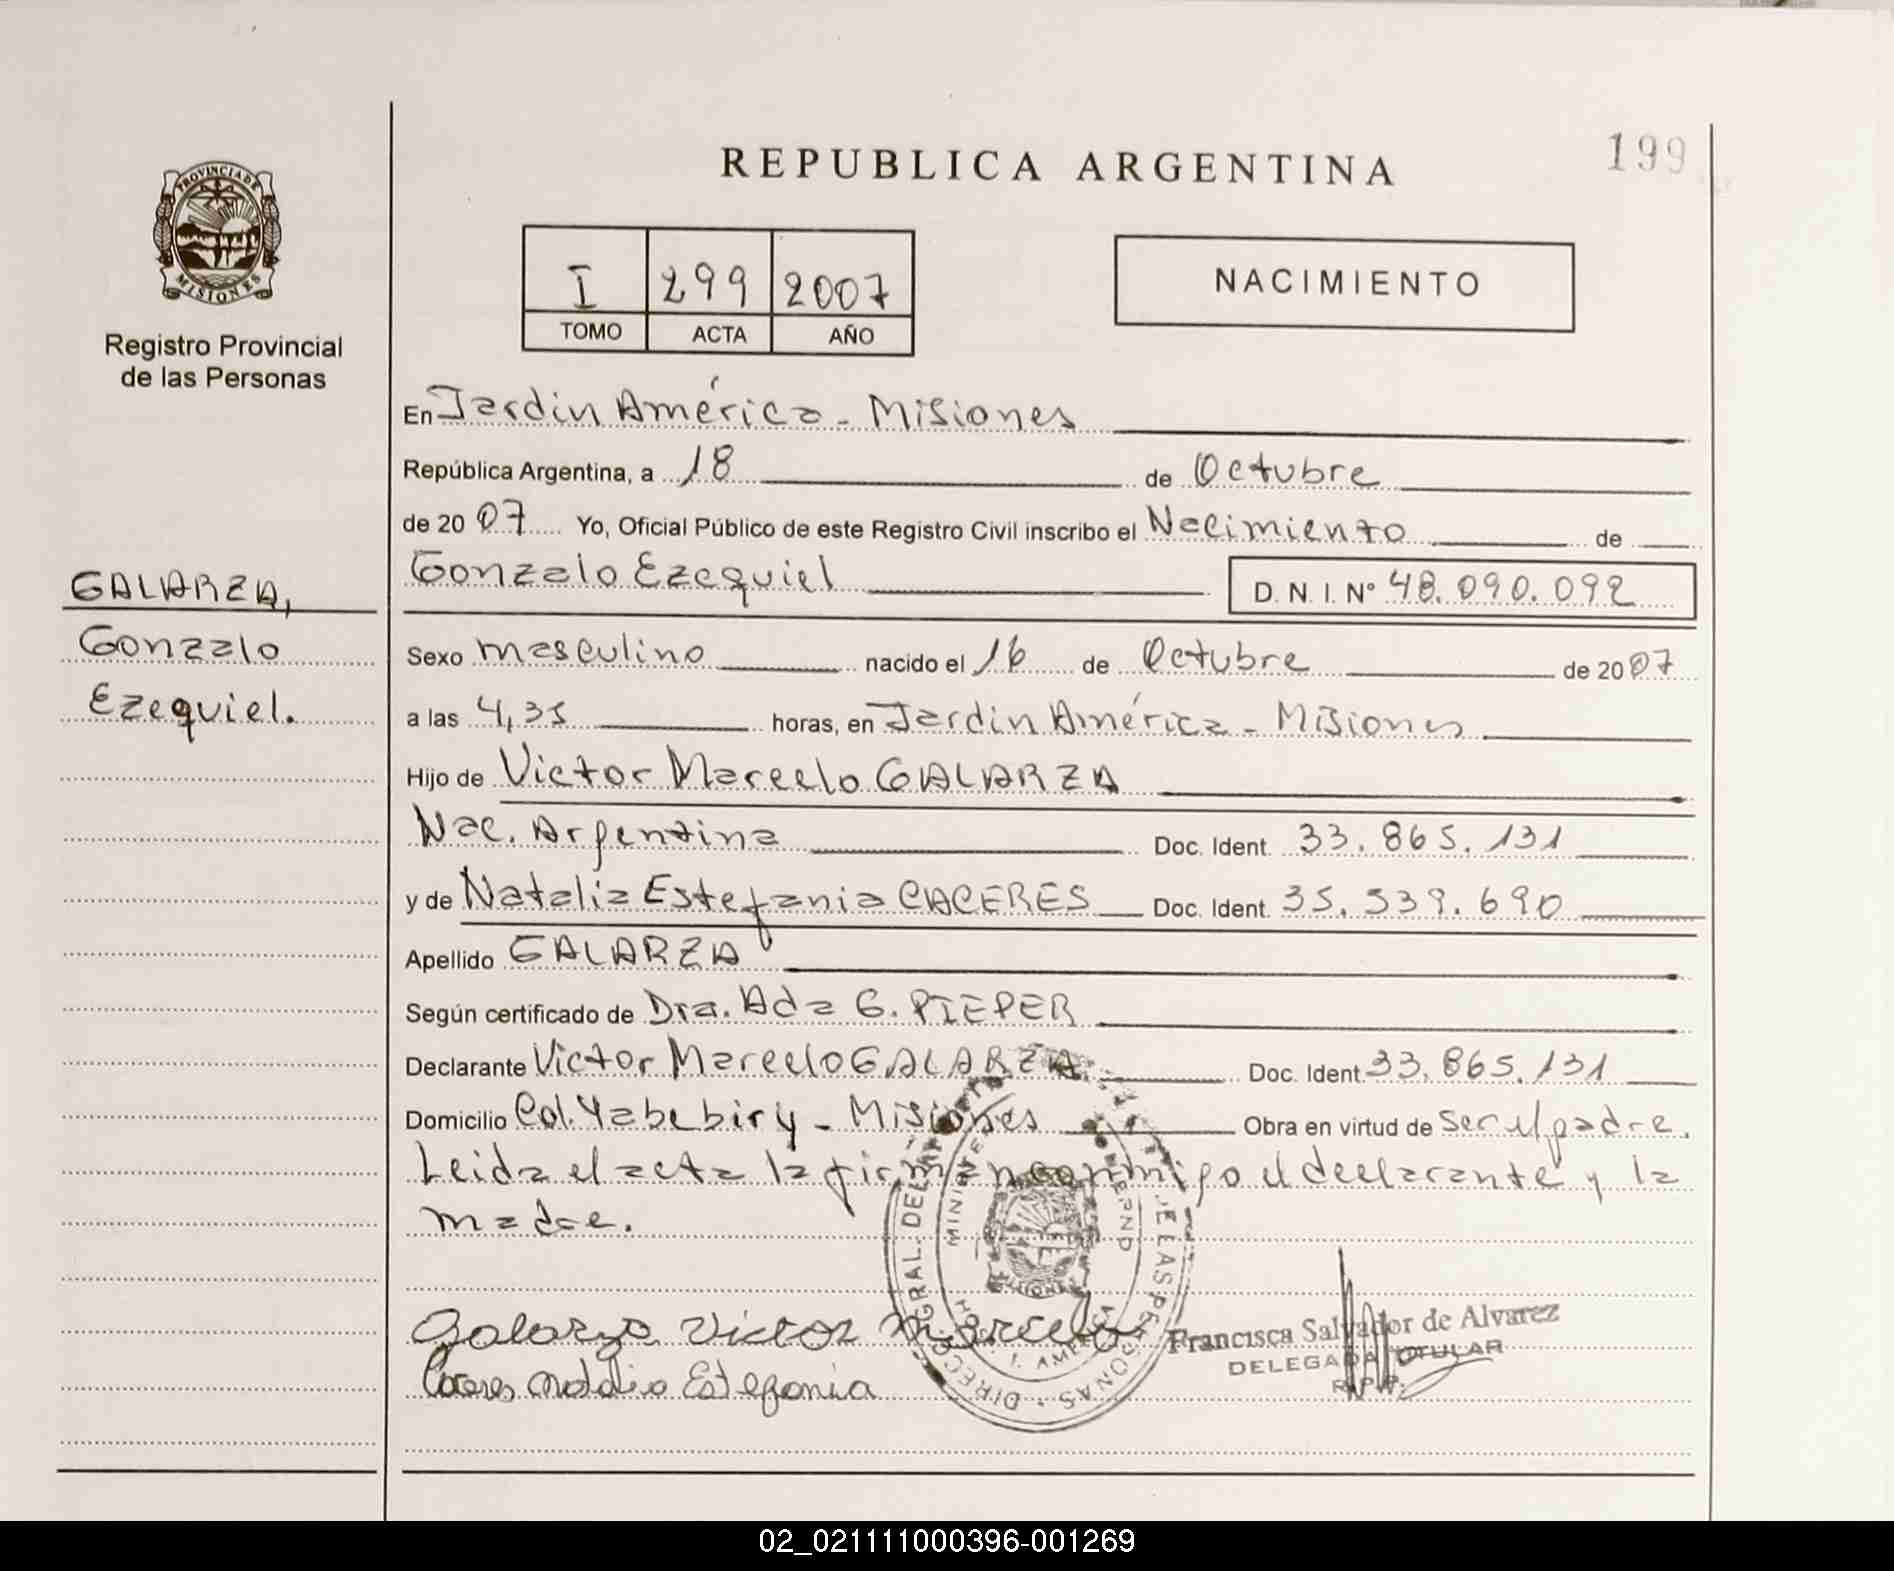 REPUBLICA ARGENTINA
199
PROVINCIA DE
MISIONES
Registro Provincial
de las Personas
I 299 2007
TOMO ACTA AÑO
NACIMIENTO
En Jardin América - Misiones
República Argentina, a 18 de Octubre
de 20 07 Yo, Oficial Público de este Registro Civil inscribo el Nacimiento de
Gonzalo Ezequiel D. N. I. Nº 48.090.092
GALARZA,
Gonzalo
Ezequiel.
Sexo masculino nacido el 16 de Octubre de 2007
a las 4,35 horas, en Jardin América - Misiones
Hijo de Victor Marcelo GALARZA
Nac. Argentina Doc. Ident. 33.865.131
y de Natalia Estefania CACERES Doc. Ident. 35.539.690
Apellido GALARZA
Según certificado de Dra. Ada G. PIEPER
Declarante Victor Marcelo GALARZA Doc. Ident. 33.865.131
Domicilio Col. Yabebiry - Misiones Obra en virtud de ser el padre.
Leida el acta la firman conmigo el declarante y la
madre.
Galarza Victor Marcelo
Caceres Natalia Estefania
Francisca Salvador de Alvarez
DELEGADA TITULAR
R.P.P.
02_021111000396-001269